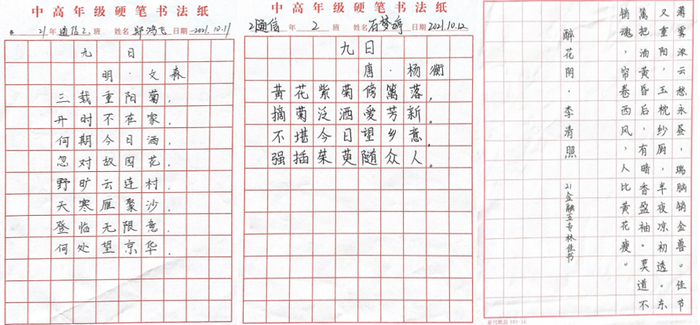 中高年级硬笔书法纸
21年 通信2班 姓名 邱鸿飞 日期 2021.10.11
九日
明·文森
三载重阳菊,
开时不在家.
何期今日酒,
忽对故园花.
野旷云连村,
天寒雁聚沙.
登临无限意,
何处望京华.
中高年级硬笔书法纸
21通信 2 班 姓名 日期 2021.10.12
九日
唐·杨衡
黄花紫菊傍篱落,
摘菊泛酒爱芳新.
不堪今日望乡意,
强插茱萸随众人.
薄雾浓云愁永昼,瑞脑销金兽。佳节
又重阳,玉枕纱厨,半夜凉初透。东
篱把酒黄昏后,有暗香盈袖。莫道不
销魂,帘卷西风,人比黄花瘦。
醉花阴·李清照
21金融五专林佳书